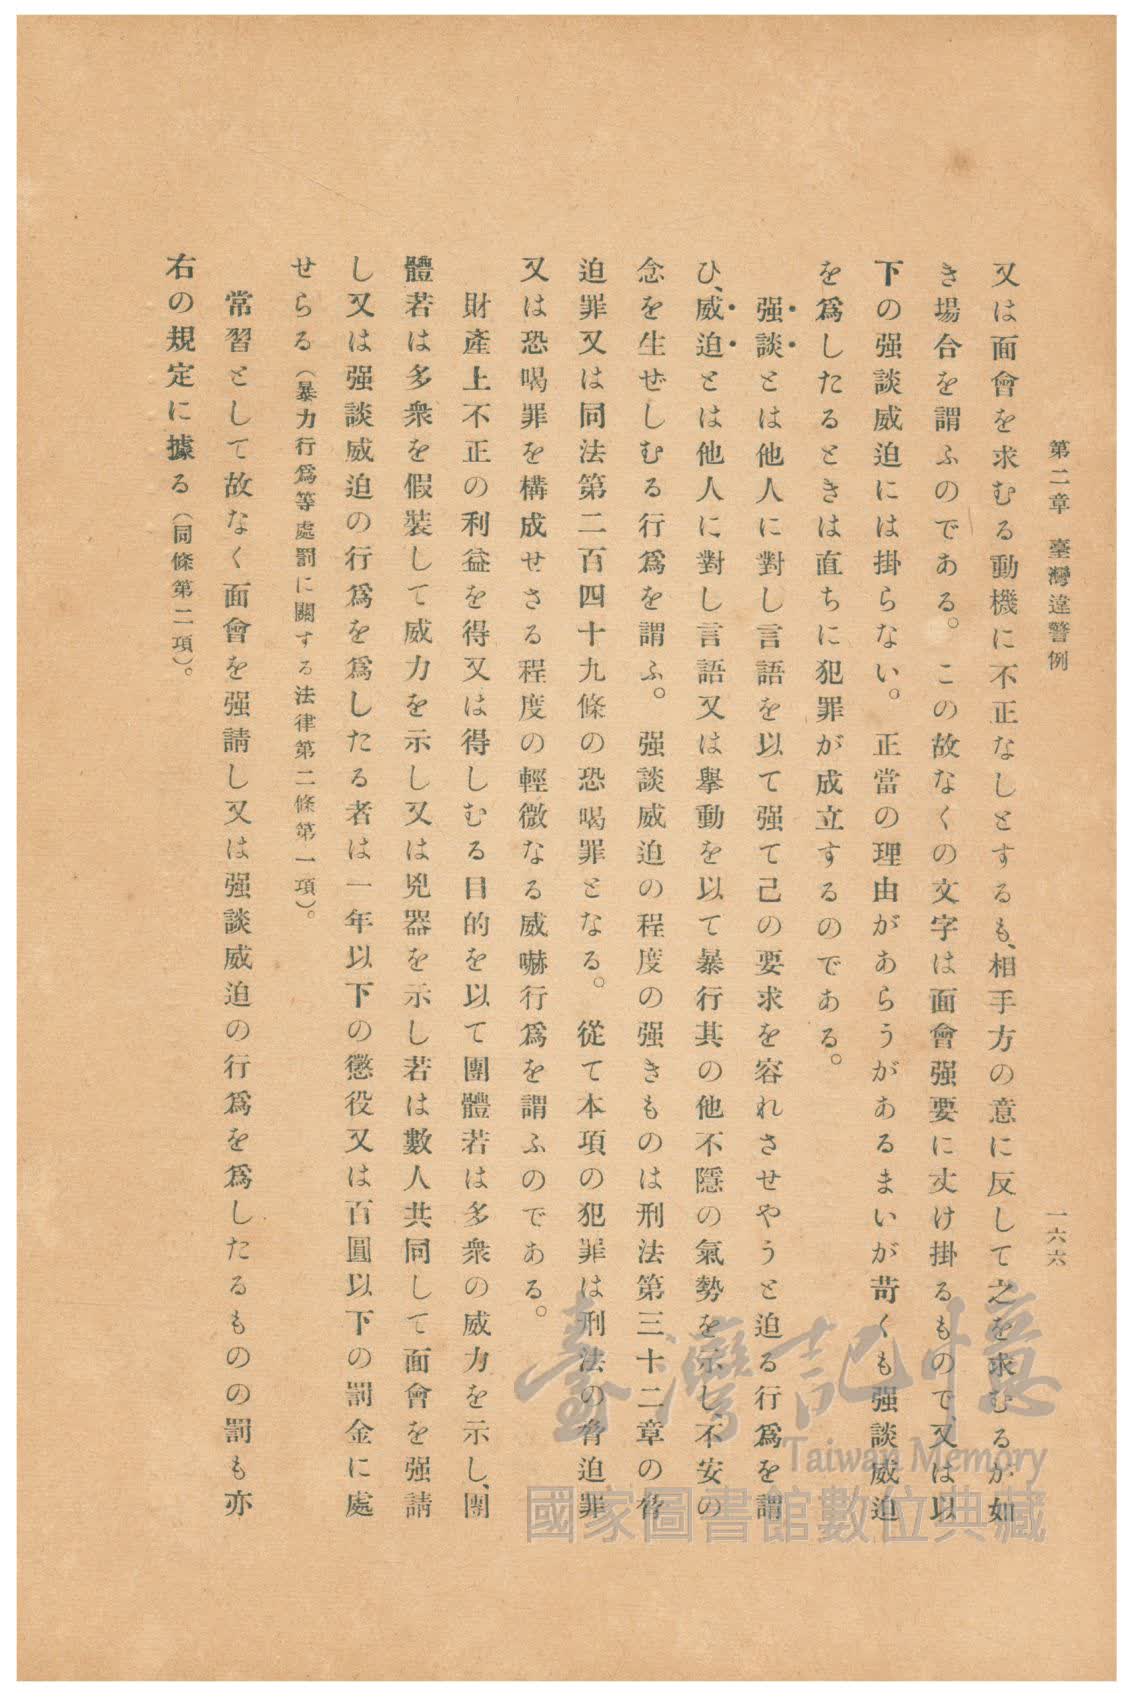 第二章　臺灣違警例
一六六
又は面會を求むる動機に不正なしとするも、相手方の意に反して之を求むるが如
き場合を謂ふのである。この故なくの文字は面會强要に丈け掛るもので、又は以
下の强談威迫には掛らない。正當の理由があらうがあるまいが苛くも强談威迫
を爲したるときは直ちに犯罪が成立するのである。
强談とは他人に對し言語を以て强て己の要求を容れさせやうと迫る行爲を謂
ひ、威迫とは他人に對し言語又は擧動を以て暴行其の他不隱の氣勢を示し、不安の
念を生ぜしむる行爲を謂ふ。强談威迫の程度の强きものは刑法第三十二章の脅
迫罪又は同法第二百四十九條の恐喝罪となる。從て本項の犯罪は刑法の脅迫罪
又は恐喝罪を構成せさる程度の輕微なる威嚇行爲を謂ふのである。
財產上不正の利益を得又は得しむる目的を以て團體若は多衆の威力を示し、團
體若は多衆を假裝して威力を示し又は兇器を示し若は數人共同して面會を强請
し又は强談威迫の行爲を爲したる者は一年以下の懲役又は百圓以下の罰金に處
せらる（暴力行爲等處罰に關する法律第二條第一項）。
常習として故なく面會を强請し又は强談威迫の行爲を爲したるものの罰も亦
右の規定に據る（同條第二項）。
臺灣記憶
Taiwan Memory
國家圖書館數位典藏